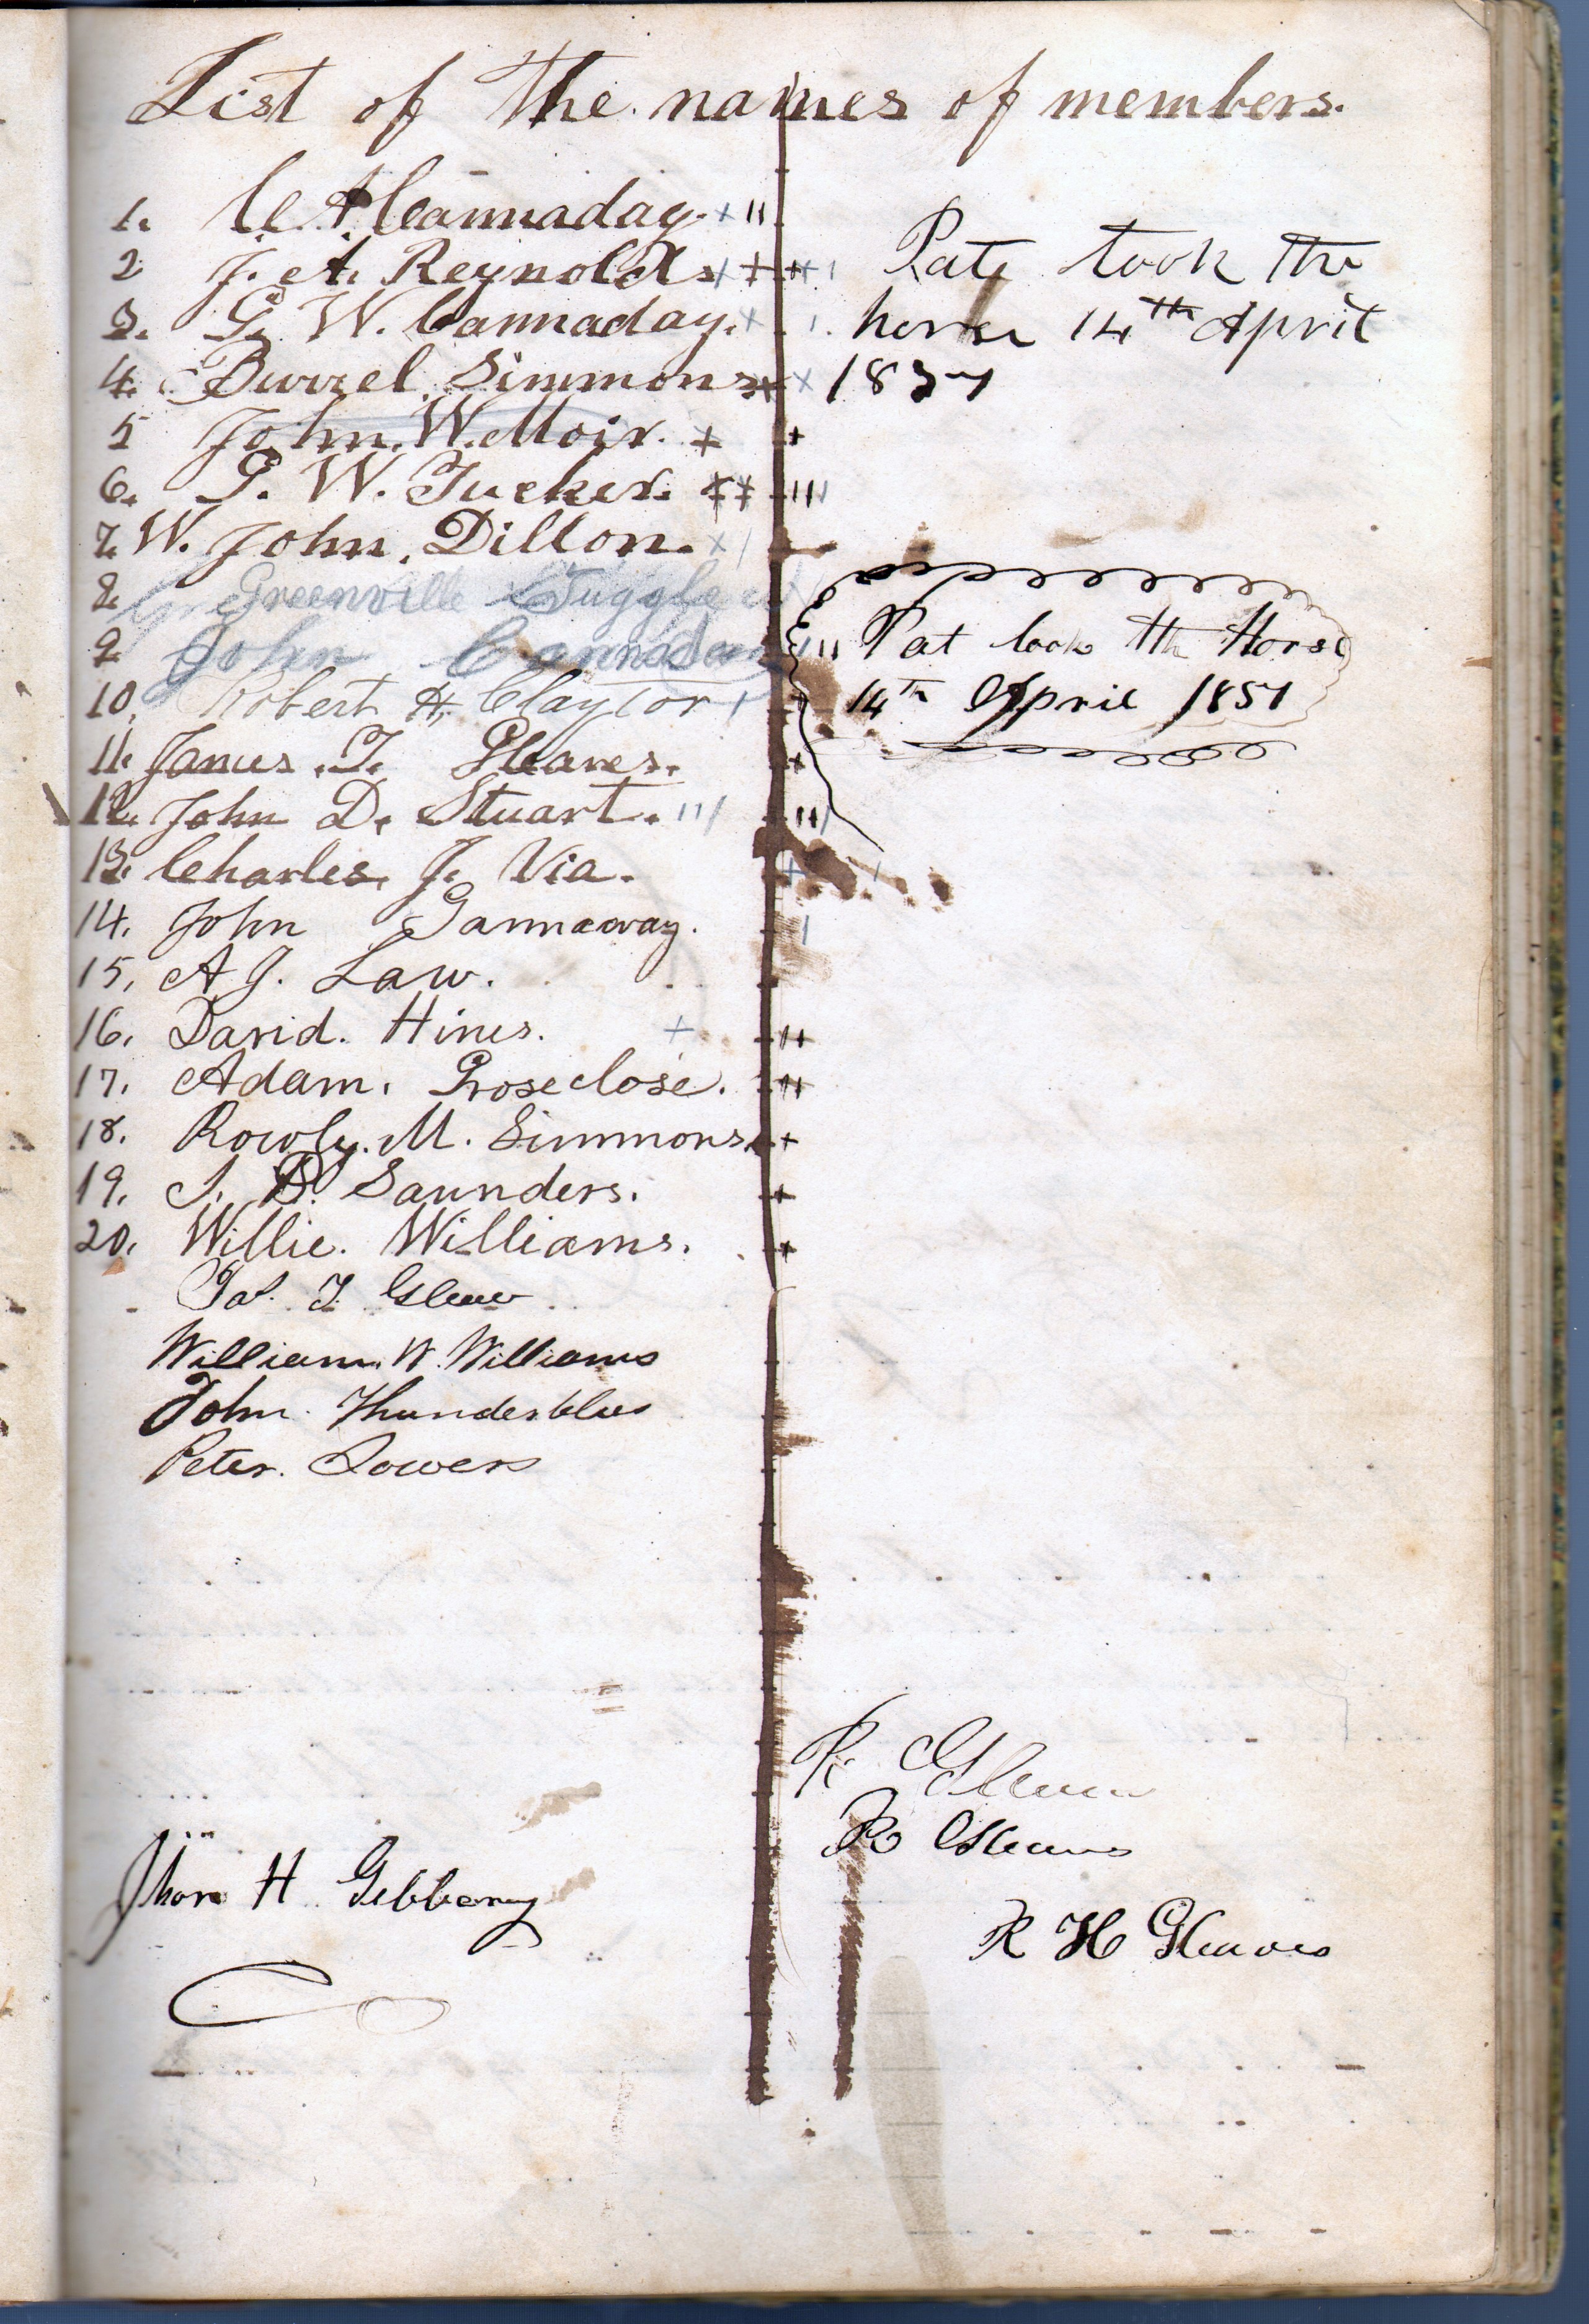 List of the names of members.
1. C. A. Cannaday.
2 J. A. Reynolds
3. G. W. Cannaday.
4. Burrel Simmons
5 John. W. Moir.
6. P. W. Tucker.
7. W. John. Dillon.
8. Greenville Tuggle
9 John Cannaday
10. Robert H. Claytor
11. James. T. Gleaves.
12. John D. Stuart.
13. Charles. J. Via.
14. John Gannaway.
15. A J. Law.
16. David. Hines.
17. Adam. Groseclose.
18. Rowly. M. Simmons
19. S. B. Saunders.
20. Willie. Williams.
Jas. T. Gleaves
William W. Williams
John Thunderblus
Peter. Lowers
H. Gibboney
Pat took the
horse 14th April
1857
Pat took th Horse
14th April 1857
R. Gleaves
R Gleaves
R H Gleaves